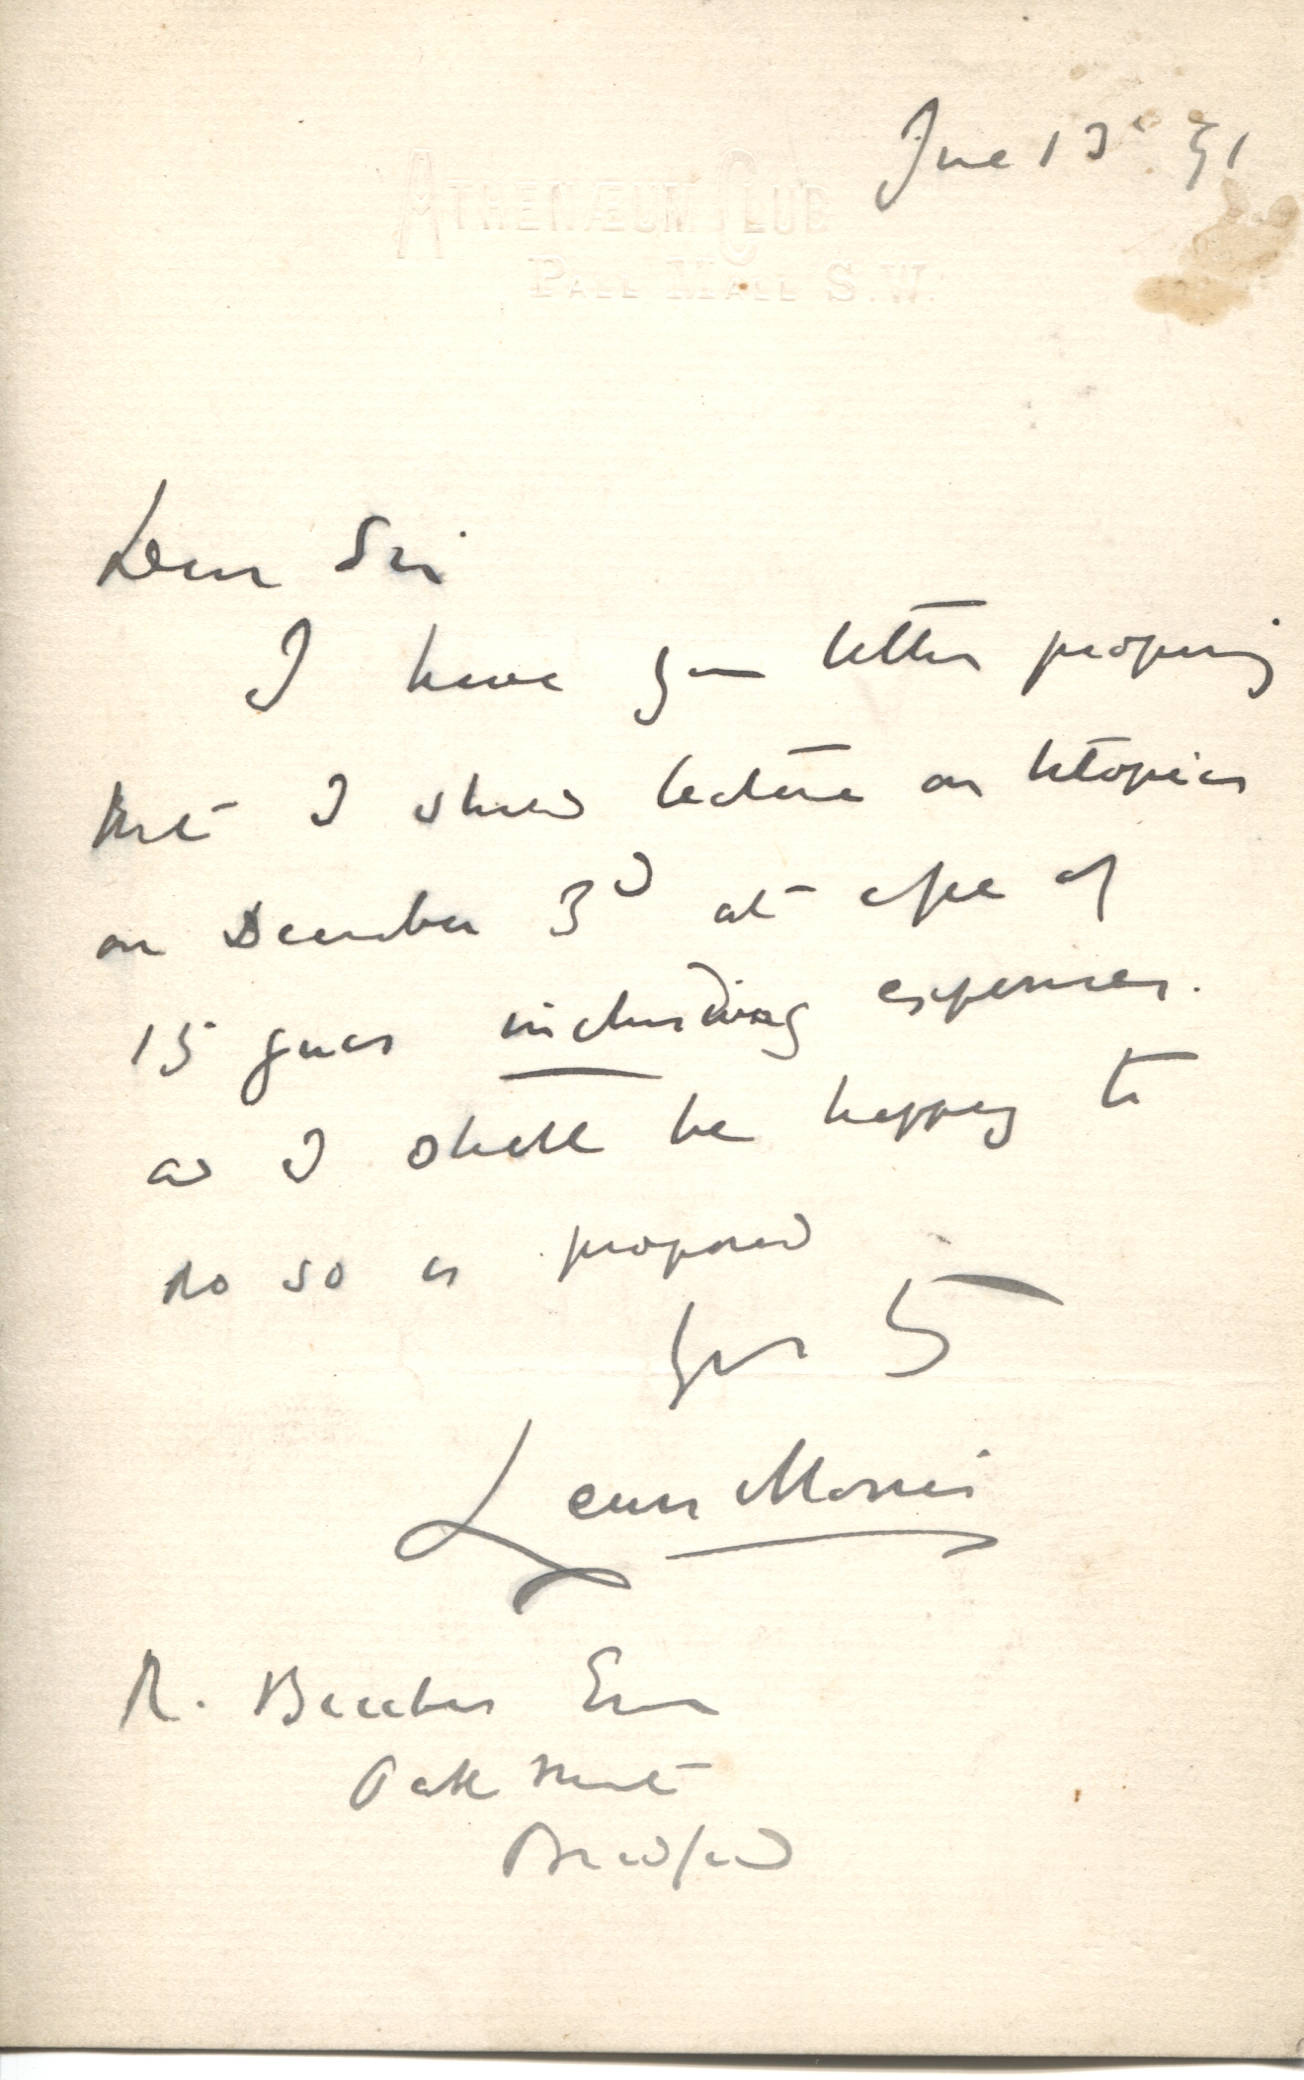 June 13 91
ATHENÆUM CLUB
PALL MALL S.W.
Dear Sir
I have your letter proposing
that I should lecture on Utopias
on December 3d at a fee of
15 guas including expenses.
as I shall be happy to
do so as proposed
Yours
Lewis Morris
R. Esq
Oak Mount
Bradford